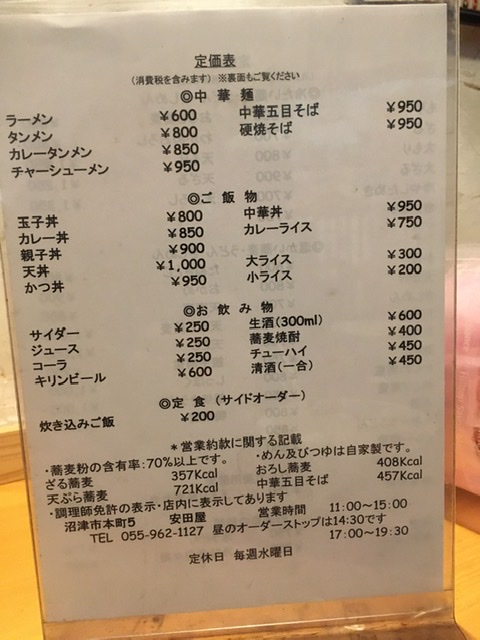 定価表
(消費税を含みます) ※裏面もご覧ください
◎中 華 麺
ラーメン ￥600 中華五目そば ￥950
タンメン ￥800 硬焼そば ￥950
カレータンメン ￥850
チャーシューメン ￥950
◎ご 飯 物
玉子丼 ￥800 中華丼 ￥950
カレー丼 ￥850 カレーライス ￥750
親子丼 ￥900
天丼 ￥1,000 大ライス ￥300
かつ丼 ￥950 小ライス ￥200
◎お 飲 み 物
サイダー ￥250 生酒(300ml) ￥600
ジュース ￥250 蕎麦焼酎 ￥400
コーラ ￥250 チューハイ ￥450
キリンビール ￥600 清酒(一合) ￥450
◎定 食 (サイドオーダー)
炊き込みご飯 ￥200
＊営業約款に関する記載
・蕎麦粉の含有率:70%以上です。 ・めん及びつゆは自家製です。
ざる蕎麦 357Kcal おろし蕎麦 408Kcal
天ぷら蕎麦 721Kcal 中華五目そば 457Kcal
・調理師免許の表示・店内に表示してあります
沼津市本町5 安田屋 営業時間 11:00～15:00
TEL 055-962-1127 昼のオーダーストップは14:30です
17:00～19:30
定休日 毎週水曜日